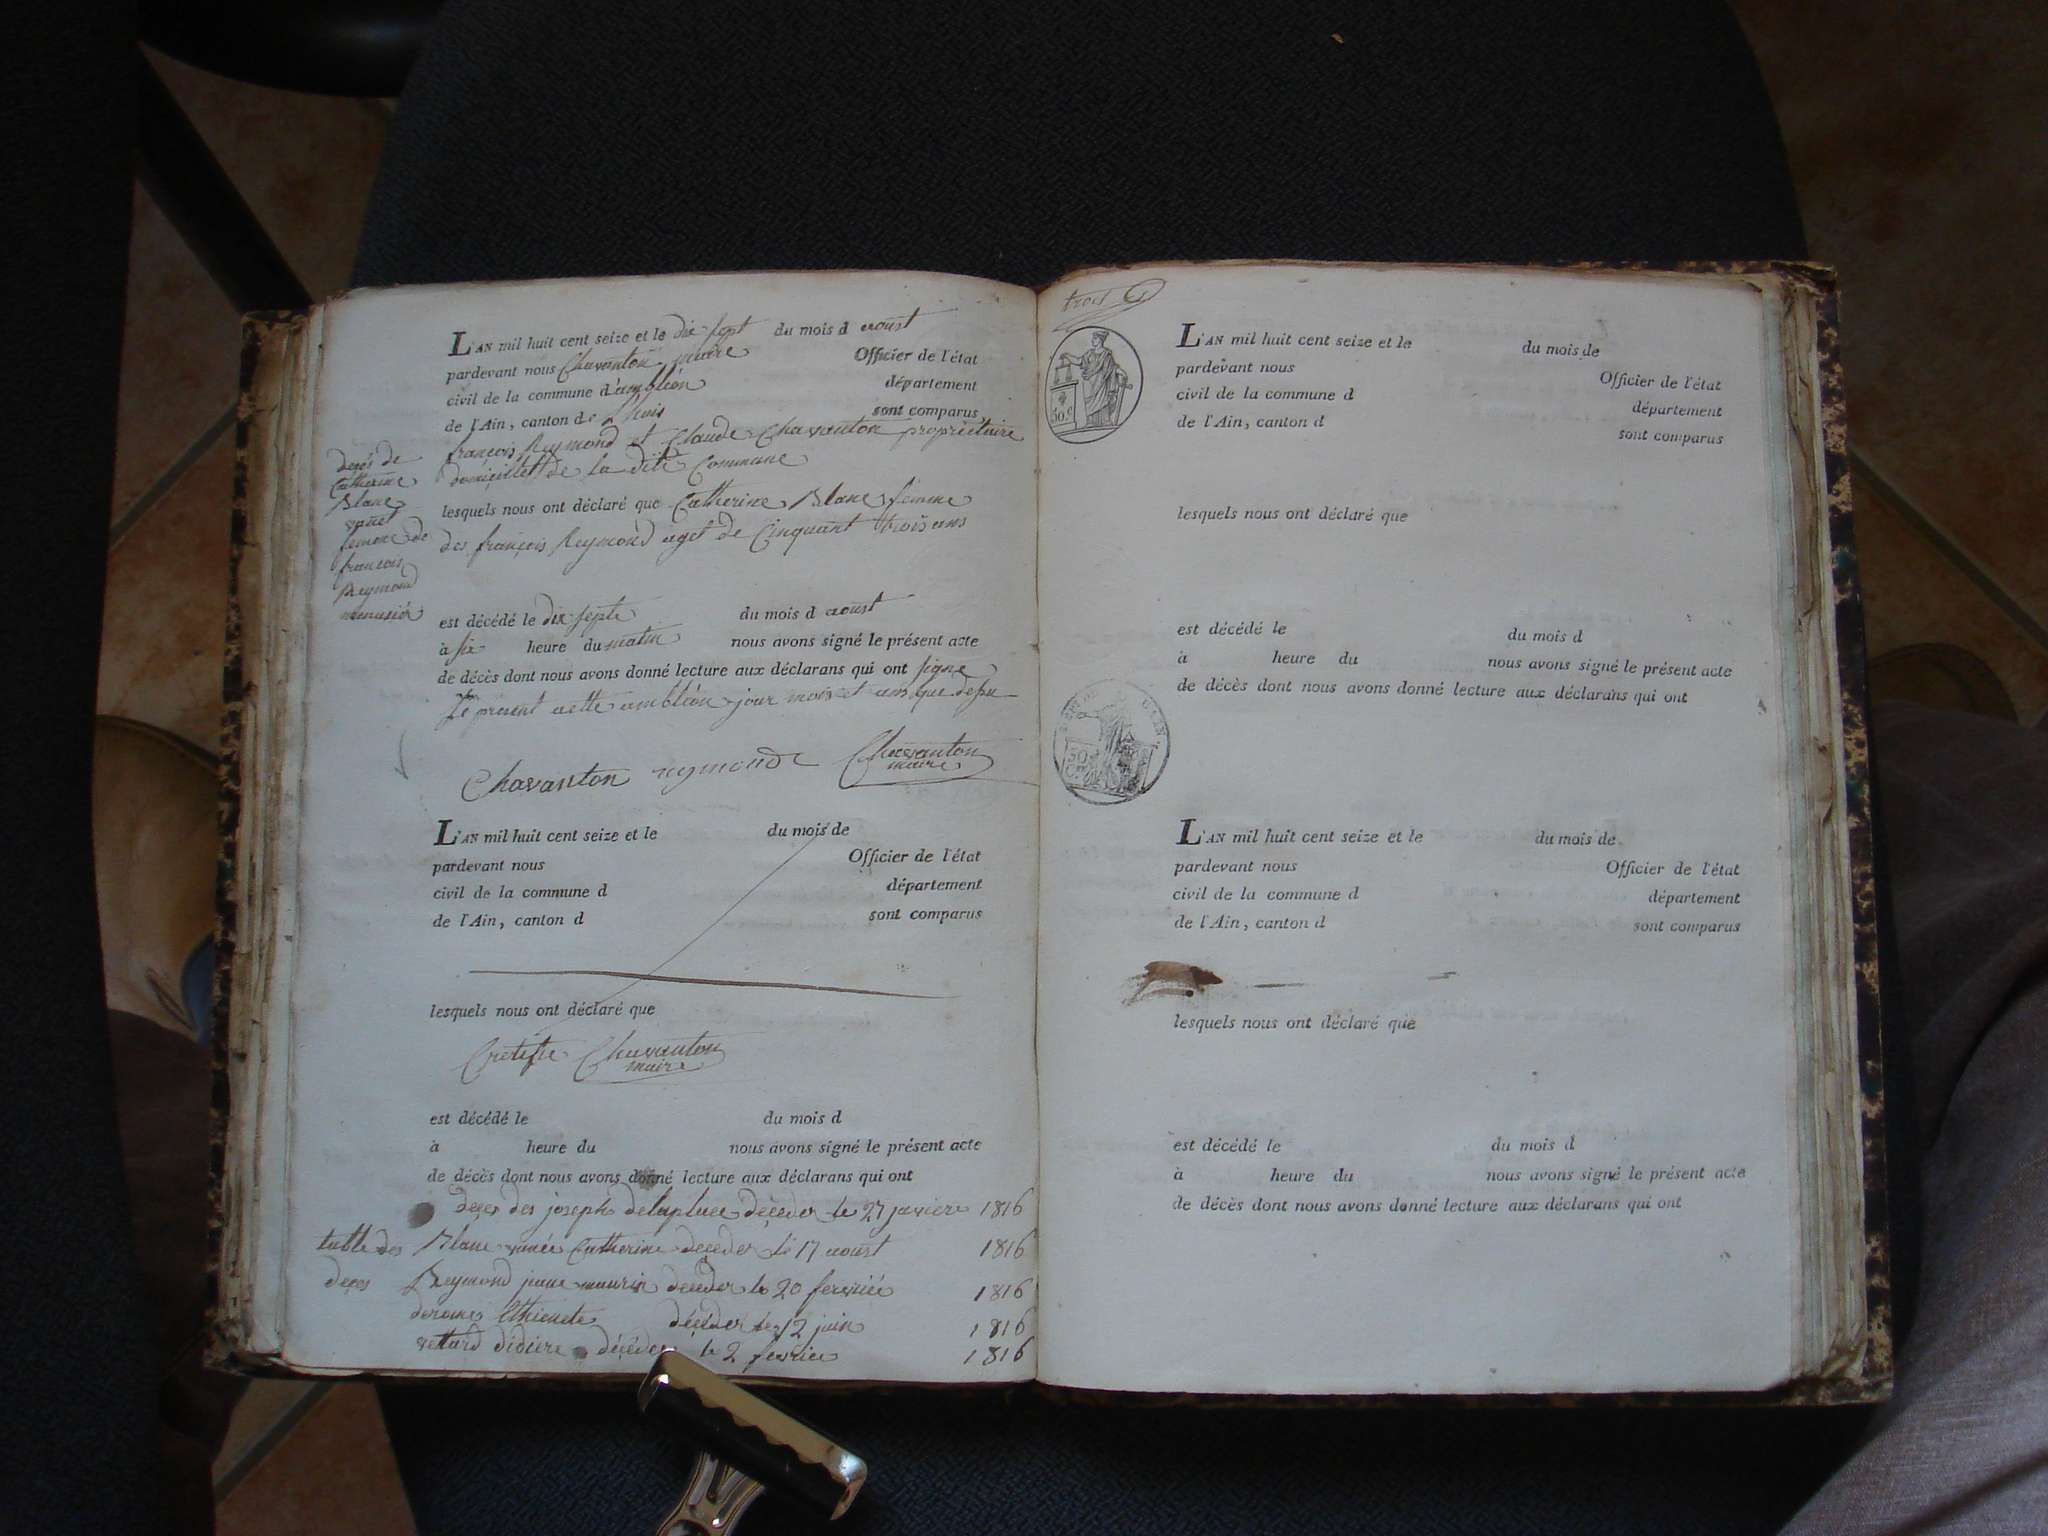 L'AN mil huit cent seize et le dix-sept du mois d aoust
pardevant nous Chavanton maire Officier de l'état
civil de la commune d'ambléon département
de l'Ain, canton de Lhuis sont comparus
françois Reymond et Claude Chavanton propriétaire
domicillet de la dite Commune
lesquels nous ont déclaré que Catherine Blanc femme
des françois Reymond aget de Cinquant trois ans
est décédé le dix septe du mois d aoust
à six heure du matin nous avons signé le présent acte
de décès dont nous avons donné lecture aux déclarans qui ont signe
Le present acte ambléon jour mois et an que desu
Chavanton reymond Chavanton
maire
decés de
Catherine
Blanc
femme de
francois
Reymond
menusiér
L'AN mil huit cent seize et le du mois de
pardevant nous Officier de l'état
civil de la commune d département
de l'Ain, canton d sont comparus
lesquels nous ont déclaré que
Chavanton
maire
est décédé le du mois d
à heure du nous avons signé le présent acte
de décès dont nous avons donné lecture aux déclarans qui ont
deces des joseph delaplace deceder le 27 janviere 1816
table des Blanc Catherine deceder le 17 aoust 1816
deces Reymond deceder le 20 1816
décéder le 12 juin 1816
vettard didiere décéder le 2 1816
trois
50.c
L'AN mil huit cent seize et le du mois de
pardevant nous Officier de l'état
civil de la commune d département
de l'Ain, canton d sont comparus
lesquels nous ont déclaré que
est décédé le du mois d
à heure du nous avons signé le présent acte
de décès dont nous avons donné lecture aux déclarans qui ont
50
L'AN mil huit cent seize et le du mois de
pardevant nous Officier de l'état
civil de la commune d département
de l'Ain, canton d sont comparus
lesquels nous ont déclaré que
est décédé le du mois d
à heure du nous avons signé le présent acte
de décès dont nous avons donné lecture aux déclarans qui ont